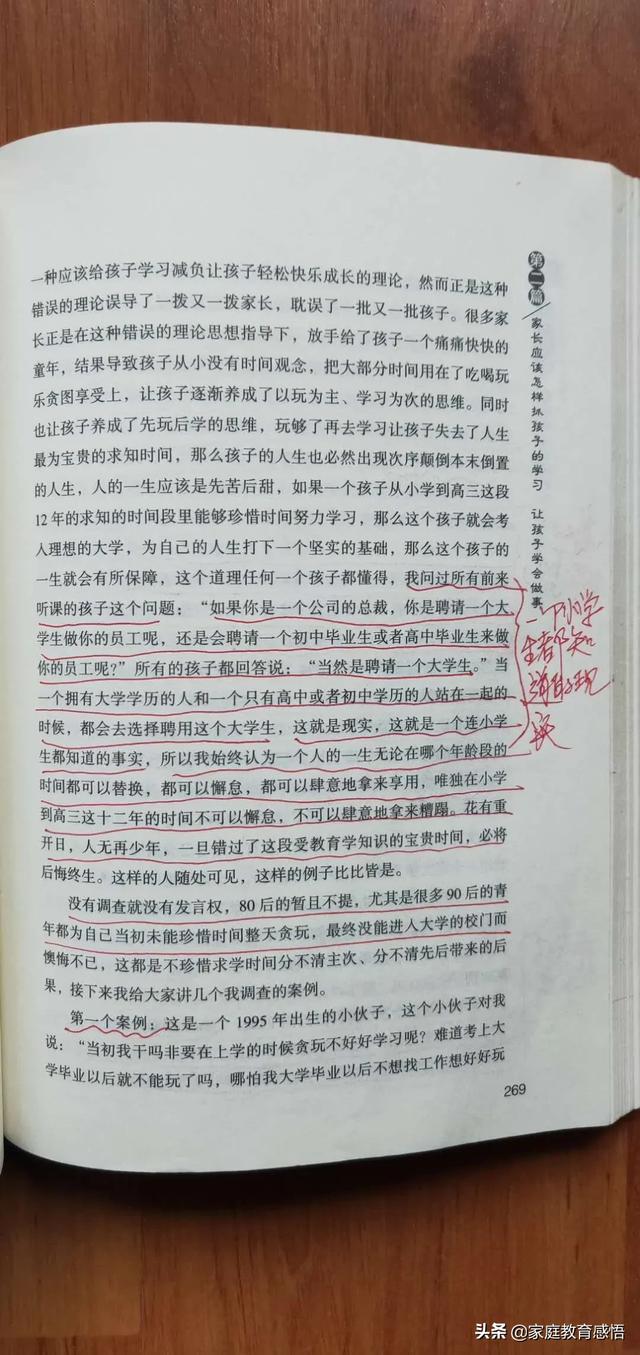 一种应该给孩子学习减负让孩子轻松快乐成长的理论，然而正是这种
错误的理论误导了一拨又一拨家长，耽误了一批又一批孩子。很多家
长正是在这种错误的理论思想指导下，放手给了孩子一个痛痛快快的
童年，结果导致孩子从小没有时间观念，把大部分时间用在了吃喝玩
乐贪图享受上，让孩子逐渐养成了以玩为主、学习为次的思维。同时
也让孩子养成了先玩后学的思维，玩够了再去学习让孩子失去了人生
最为宝贵的求知时间，那么孩子的人生也必然出现次序颠倒本末倒置
的人生，人的一生应该是先苦后甜，如果一个孩子从小学到高三这段
12年的求知的时间段里能够珍惜时间努力学习，那么这个孩子就会考
入理想的大学，为自己的人生打下一个坚实的基础，那么这个孩子的
一生就会有所保障，这个道理任何一个孩子都懂得，我问过所有前来
听课的孩子这个问题：“如果你是一个公司的总裁，你是聘请一个大
学生做你的员工呢，还是会聘请一个初中毕业生或者高中毕业生来做
你的员工呢？”所有的孩子都回答说：“当然是聘请一个大学生。”当
一个拥有大学学历的人和一个只有高中或者初中学历的人站在一起的
时候，都会去选择聘用这个大学生，这就是现实，这就是一个连小学
生都知道的事实，所以我始终认为一个人的一生无论在哪个年龄段的
时间都可以替换，都可以懈怠，都可以肆意地拿来享用，唯独在小学
到高三这十二年的时间不可以懈怠，不可以肆意地拿来糟蹋。花有重
开日，人无再少年，一旦错过了这段受教育学知识的宝贵时间，必将
后悔终生。这样的人随处可见，这样的例子比比皆是。
没有调查就没有发言权，80后的暂且不提，尤其是很多90后的青
年都为自己当初未能珍惜时间整天贪玩，最终没能进入大学的校门而
懊悔不已，这都是不珍惜求学时间分不清主次、分不清先后带来的后
果，接下来我给大家讲几个我调查的案例。
第一个案例：这是一个1995年出生的小伙子，这个小伙子对我
说：“当初我干吗非要在上学的时候贪玩不好好学习呢？难道考上大
学毕业以后就不能玩了吗，哪怕我大学毕业以后不想找工作想好好玩
269
第二篇
家长应该怎样抓孩子的学习 让孩子学会做事
一个小学
生都知
头条 @家庭教育感悟